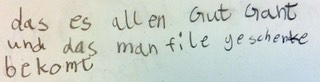 das es allen Gut Gant
und das man file geschenke
bekomt